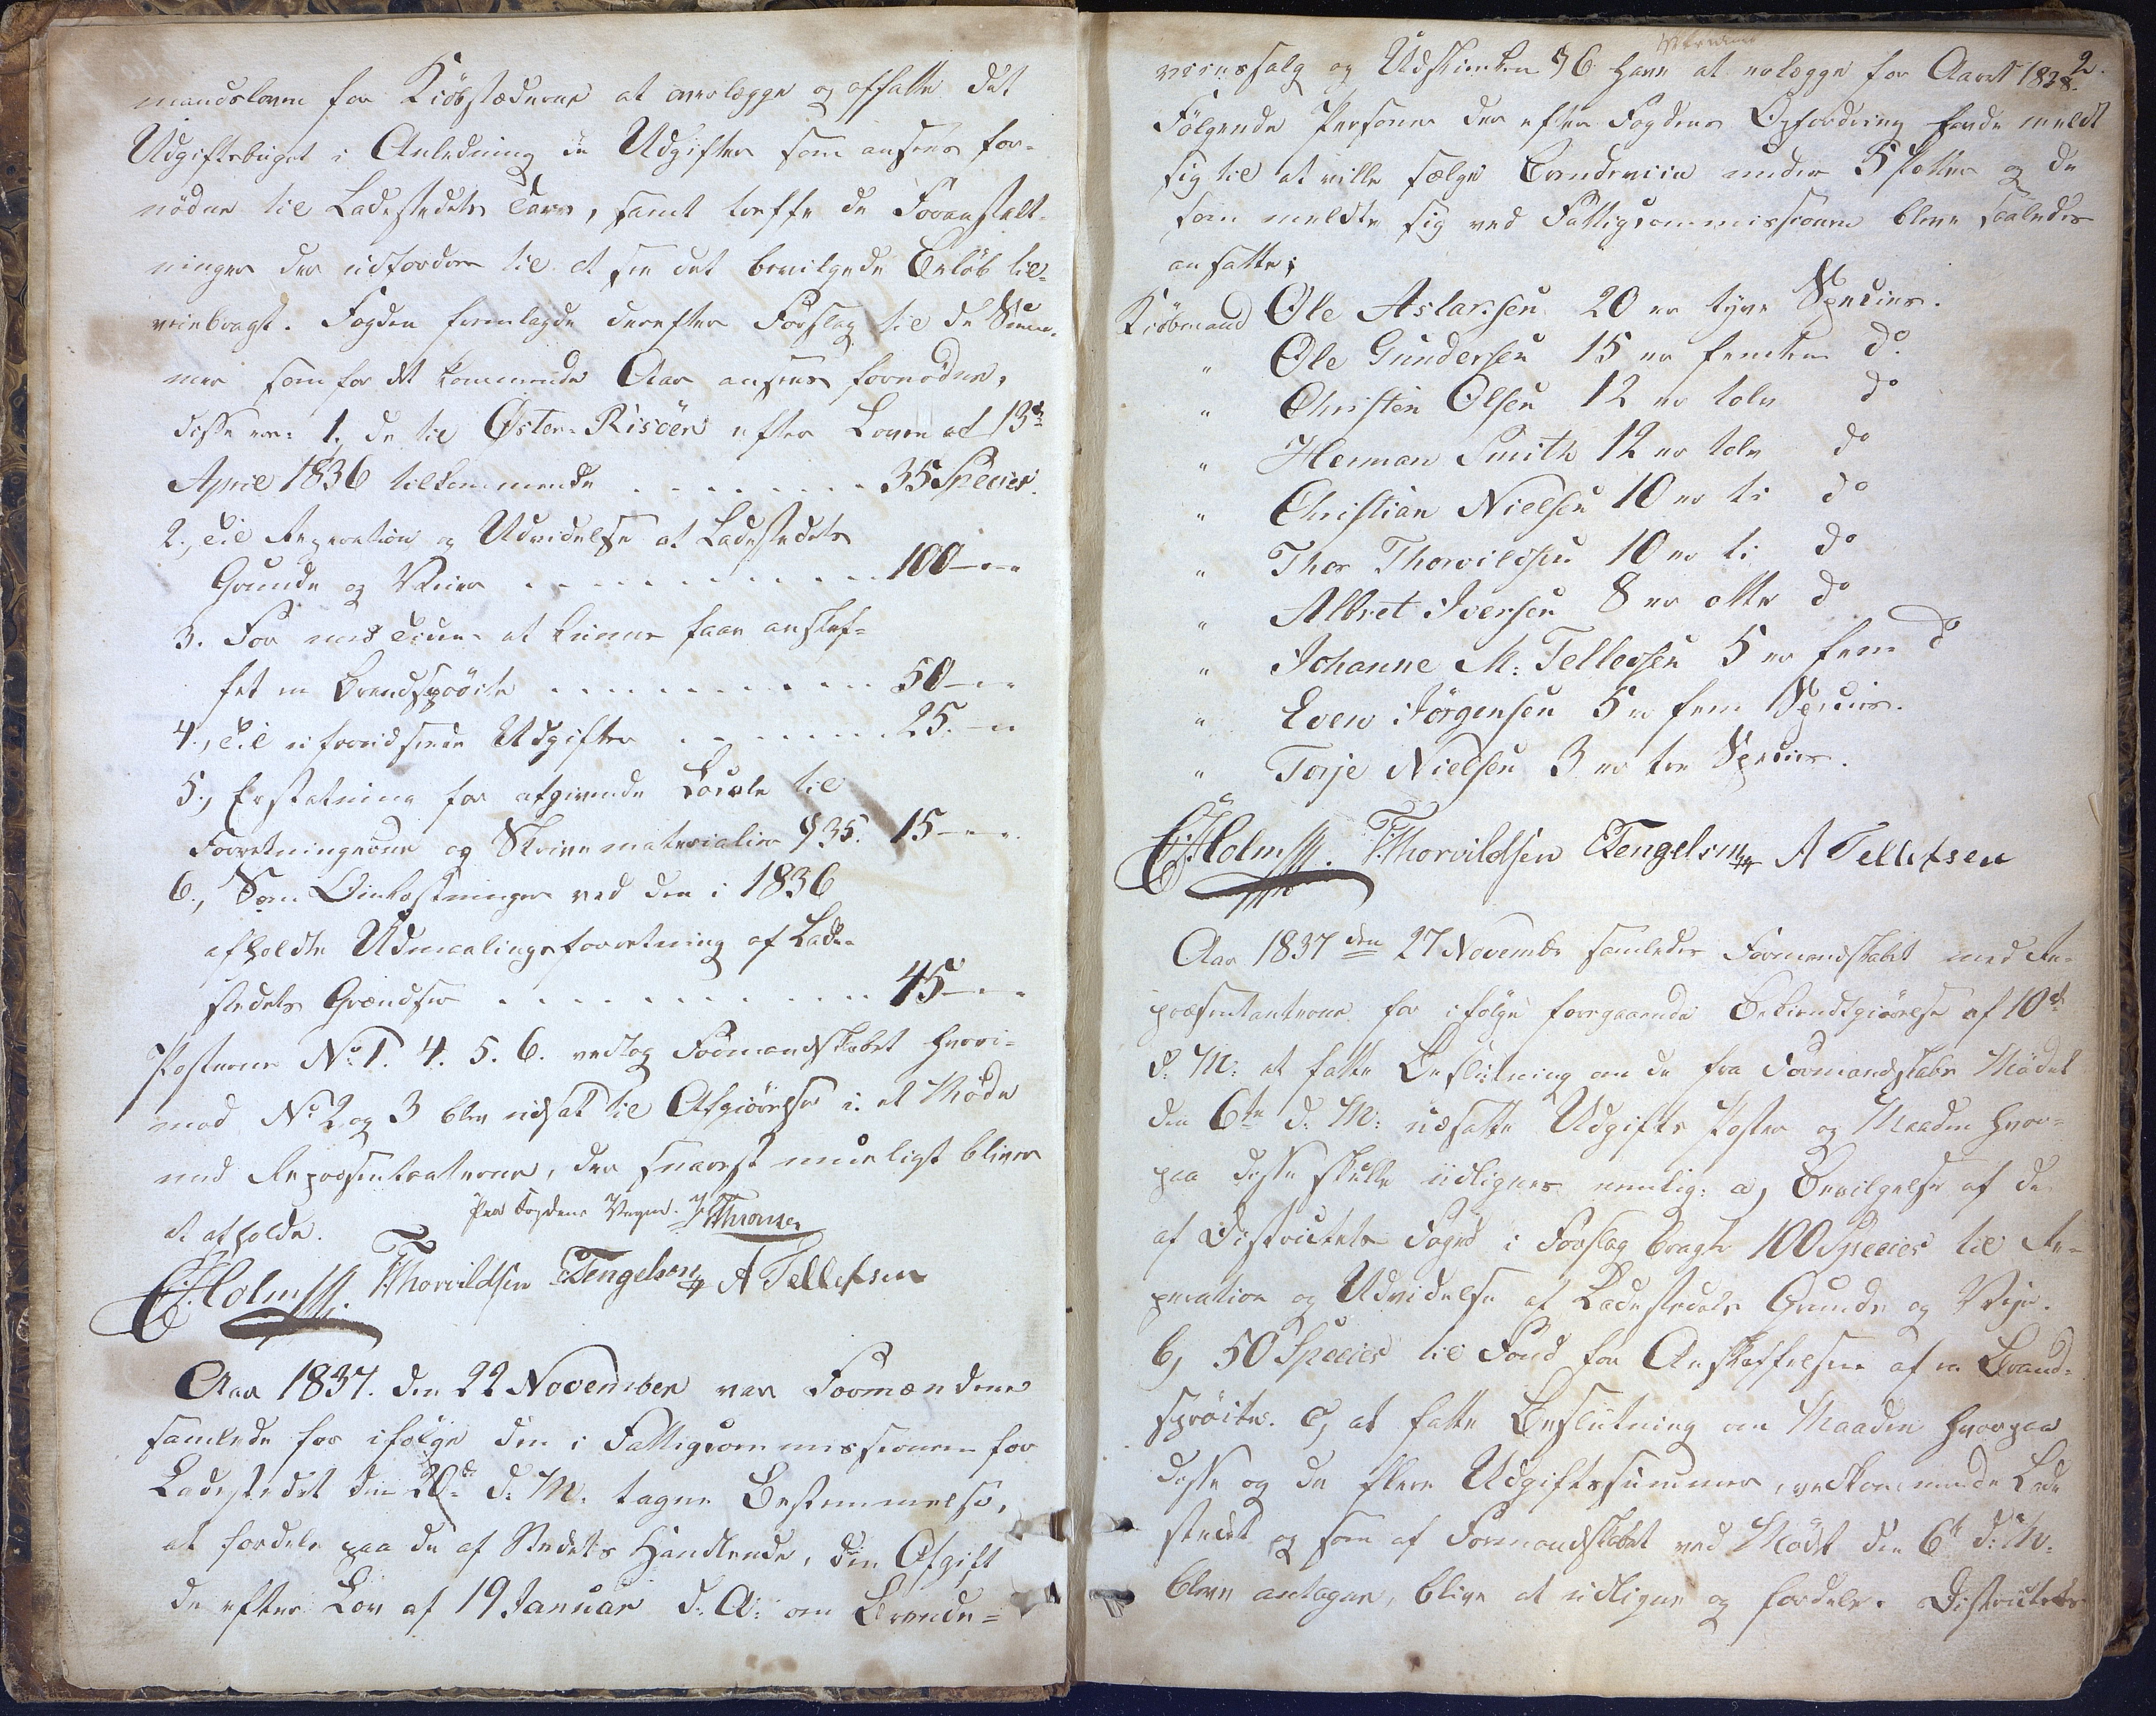 mandsloven for Kiöbstæderne at overlægge og affatte det
Udgiftsbüget i Anledning de Udgifter som ansees for-
nödne til Ladestedets Tarv, samt treffe de Foranstalt-
ninger der udfordres til at see det bevilgede Beløb til-
veiebragt. Fogden fremlagde derefter Forslag til de Sum-
mer som for det kommende Aar ansees fornödne,
disse ere: 1, de til Øster-Risöer efter Loven af 13de
April 1836 tilkommende . . . . . . . . 35 Species.
2., Til Reperation og Udvidelse af Ladestedets
Grunde og Veier . . . . . . . . . . . 100 — " — "
3. For med Tiden at kunne faae anskaf-
fet en Brandspröite . . . . . . . . . . 50 — " — "
4., Til uforudseede Udgifter . . . . . . . 25. — "
5., Erstatning for afgivende Locale til
Forretningerne og Skrivematerialier § 35. 15 — " — "
6., Som Omkostninger ved den i 1836
afholdte Udmaalingsforretning af Lade-
stedets Grændser . . . . . . . . . . . . 45 — " — "
Posterne No 1. 4. 5. 6. vedtog Formandskabet hvori-
mod No 2 og 3 blev udsat til Afgiörelse i et Möde
med Repræsentanterne, der snarest mueligt bliver
at afholde. Paa Fogdens Vegne.
C. Holm T. Thorvildsen C Tengelsen A Tellefsen
Aar 1837. den 22 November var Formændene
samlede for ifölge den i Fattigcommissionen for
Ladestedet den 20de d: M: tagne Bestemmelse,
at fordele paa de af Stedets Handlende, den Afgift
de efter Lov af 19 Januar d. A: om Brænde-
2.
viinssalg og Udskienken § 6 have at erlægge for Aaret 1838.
Fölgende Personer der efter Fogdens Opfordring havde meldt
sig til at ville sælge Brændeviin under 5 Potter og de
som meldte sig ved Fattigcommissionen bleve saaledes
ansatte:
Kiöbmand Ole Aslaksen 20 er tyve Species.
" Ole Gundersen 15 er femten do
" Christen Olsen 12 er tolv do
" Herman Smith 12 er tolv do
" Christian Nielsen 10 er ti do
" Thor Thorvildsen 10 er ti do
" Albret Iversen 8 er otte do
" Johanne M: Tellefsen 5 er fem do
" Even Jörgensen 5 er fem Species.
" Torje Nielsen 3 er tre Species.
C. Holm T. Thorvildsen C Tengelsen A Tellefsen
Aar 1837 den 27 Novembr samledes Formandskabet med Re-
præsentanterne for ifölge foregaaende Bekiendtgiörelse af 10de
d: M: at fatte Beslutning om de fra Formandskabs Mödet
den 6te d: M: udsatte Udgifts Poster og Maaden hvor-
paa disse skulle udlignes nemlig: a, Bevilgelse af de
af Districtets Foged i Forslag bragte 100 Species til Re-
peration og Udvidelse af Ladestedets Grunde og Veje.
b, 50 Species til Fond for Anskaffelsen af en Brand-
spröite. c, at fatte Beslutning om Maaden hvorpaa
disse og de flere Udgiftssummer, vedkommende Lade
stedet og som af Formandskabet ved Mödet den 6te d: M.
bleve antagne, blive at udligne og fordele. Districtets